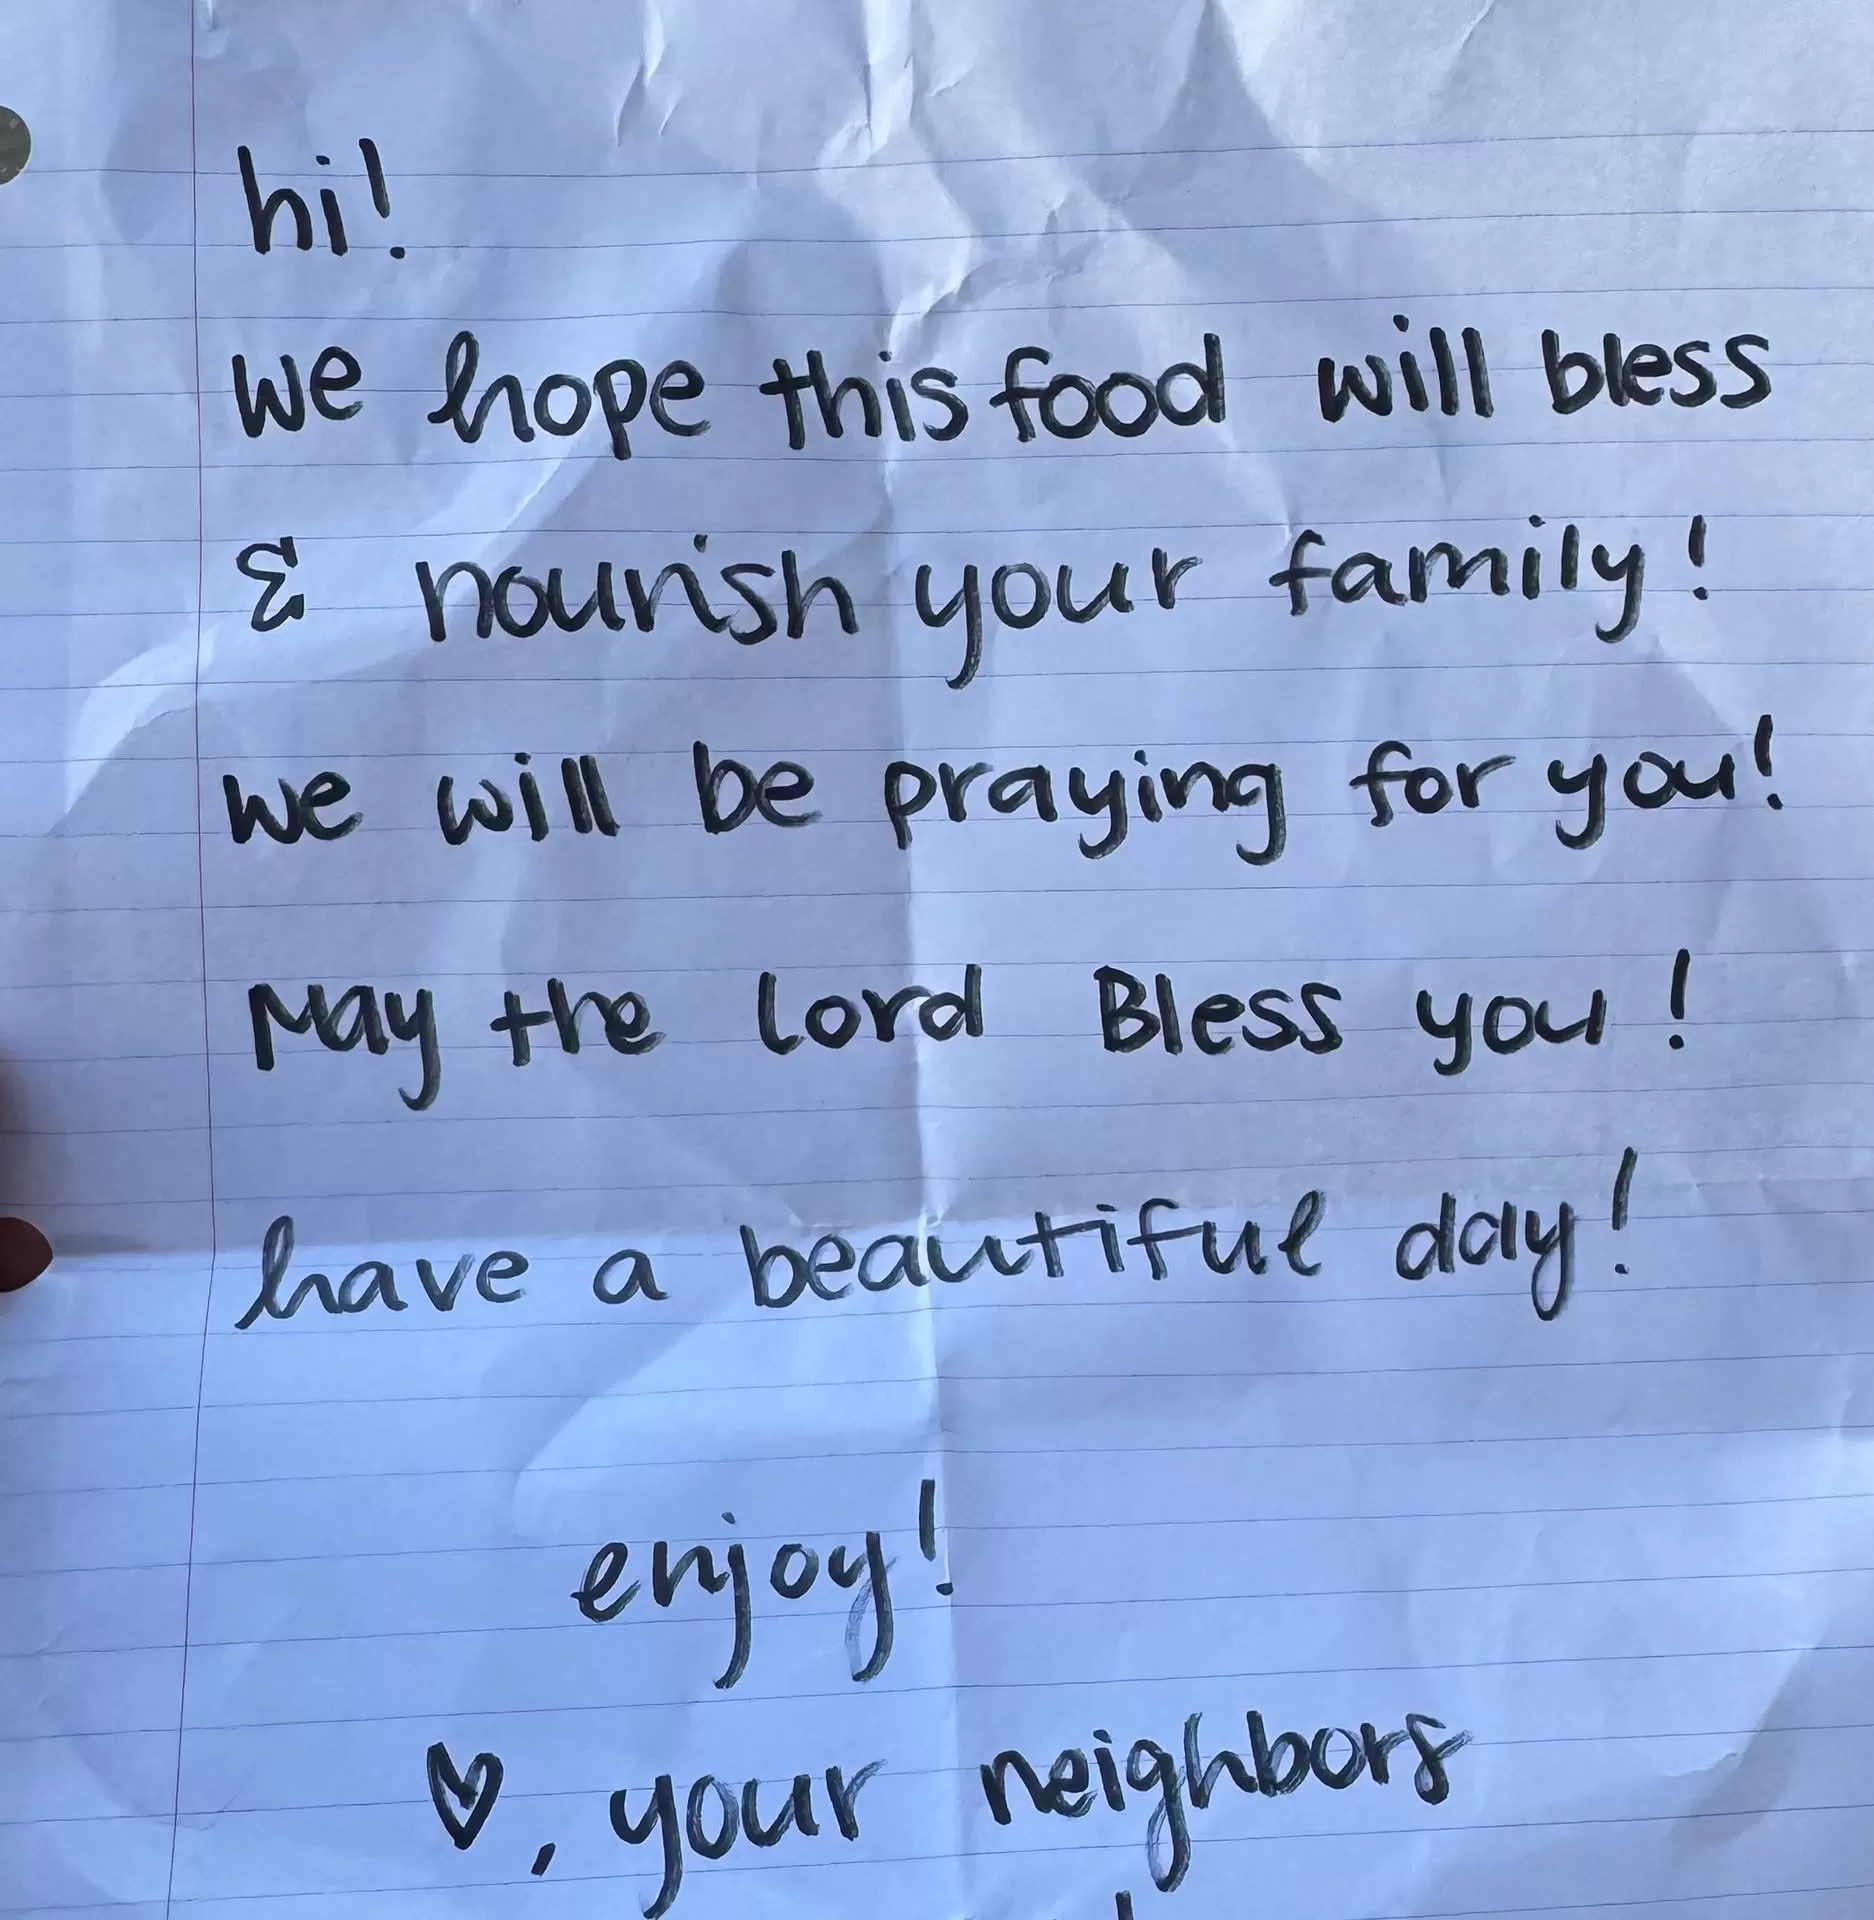 hi!
We hope this food will bless
& nourish your family!
We will be praying for you!
May the lord Bless you!
have a beautiful day!
enjoy!
♡, your neighbors